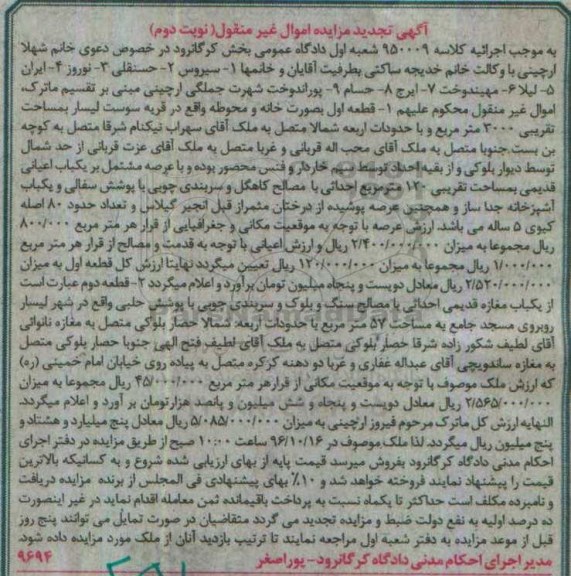 آگهی تجدید مزایده اموال غیر منقول(نوبت دوم)
به موجب اجرائیه کلاسه ۹۵۰۰۰۹ شعبه اول دادگاه عمومی بخش کرگانرود در خصوص دعوی خانم شهلا
ارچینی با وکالت خانم خدیجه ساکتی بطرفیت آقایان و خانمها ۱- سیروس ۲- حسنقلی ۳- نوروز ۴- ایران
۵- لیلا ۶- مهیندوخت ۷- ایرج ۸- حسام ۹- پوراندوخت شهرت جملگی ارچینی مبنی بر تقسیم ماترک،
اموال غیر منقول محکوم علیهم ۱- قطعه اول بصورت خانه و محوطه واقع در قریه سوست لیسار بمساحت
تقریبی ۳۰۰۰ متر مربع و با حدودات اربعه شمالا متصل به ملک آقای سهراب نیکنام شرقا متصل به کوچه
بن بست جنوبا متصل به ملک آقای محب اله قربانی و غربا متصل به ملک آقای عزت قربانی از حد شمال
توسط دیوار بلوکی و از بقیه احداد توسط سیم خاردار و فنس محصور بوده و با عرصه مشتمل بر یکباب اعیانی
قدیمی بمساحت تقریبی ۱۲۰ مترمربع احداثی با مصالح کاهگل و سربندی چوبی با پوشش سفالی و یکباب
آشپزخانه جدا ساز و همچنین عرصه پوشیده از درختان مثمر از قبل انجیر گیلاس و تعداد حدود ۸۰ اصله
کیوی ۵ ساله می باشد. ارزش عرصه با توجه به موقعیت مکانی و جغرافیایی از قرار هر متر مربع ۸۰۰/۰۰۰
ریال مجموعا به میزان ۲/۴۰۰/۰۰۰/۰۰۰ ریال و ارزش اعیانی با توجه به قدمت و مصالح از قرار هر متر مربع
۱/۰۰۰/۰۰۰ ریال مجموعا به میزان ۱۲۰/۰۰۰/۰۰۰ ریال تعیین میگردد نهایتا ارزش کل قطعه اول به میزان
۲/۵۲۰/۰۰۰/۰۰۰ ریال معادل دویست و پنجاه میلیون تومان برآورد و اعلام میگردد ۲- قطعه دوم عبارت است
از یکباب مغازه قدیمی احداثی با مصالح سنگ و بلوک و سربندی چوبی با پوشش حلبی واقع در شهر لیسار
روبروی مسجد جامع به مساحت ۵۷ متر مربع با حدودات اربعه: شمالا حصار بلوکی متصل به مغازه نانوائی
آقای لطیف شکور زاده شرقا حصار بلوکی متصل به ملک آقای لطیف فتح الهی جنوبا حصار بلوکی متصل
به مغازه ساندویچی آقای عبداله غفاری و غربا دو دهنه کرکره متصل به پیاده روی خیابان امام خمینی (ره)
که ارزش ملک موصوف با توجه به موقعیت مکانی از قرار هر متر مربع ۴۵/۰۰۰/۰۰۰ ریال مجموعا به میزان
۲/۵۶۵/۰۰۰/۰۰۰ ریال معادل دویست و پنجاه و شش میلیون و پانصد هزار تومان بر آورد و اعلام میگردد.
النهایه ارزش کل ماترک مرحوم فیروز ارچینی به میزان ۵/۰۸۵/۰۰۰/۰۰۰ ریال معادل پنج میلیارد و هشتاد و
پنج میلیون ریال میگردد. لذا ملک موصوف در ۹۶/۱۰/۱۶ ساعت ۱۰:۰۰ صبح از طریق مزایده در دفتر اجرای
احکام مدنی دادگاه کرگانرود بفروش میرسد قیمت پایه از بهای ارزیابی شده شروع و به کسانیکه بالاترین
قیمت را پیشنهاد نمایند فروخته خواهد شد و ۱۰٪ بهای پیشنهادی فی المجلس از برنده مزایده دریافت
و نامبرده مکلف است حداکثر تا یکماه نسبت به پرداخت باقیمانده ثمن معامله اقدام نماید در غیر اینصورت
ده درصد اولیه به نفع دولت ضبط و مزایده تجدید می گردد متقاضیان در صورت تمایل می توانند پنج روز
قبل از موعد مزایده به دفتر شعبه اول مراجعه نمایند تا ترتیب بازدید آنان از ملک مورد مزایده داده شود.
مدیر اجرای احکام مدنی دادگاه کرگانرود - پوراصغر ۹۶۹۴